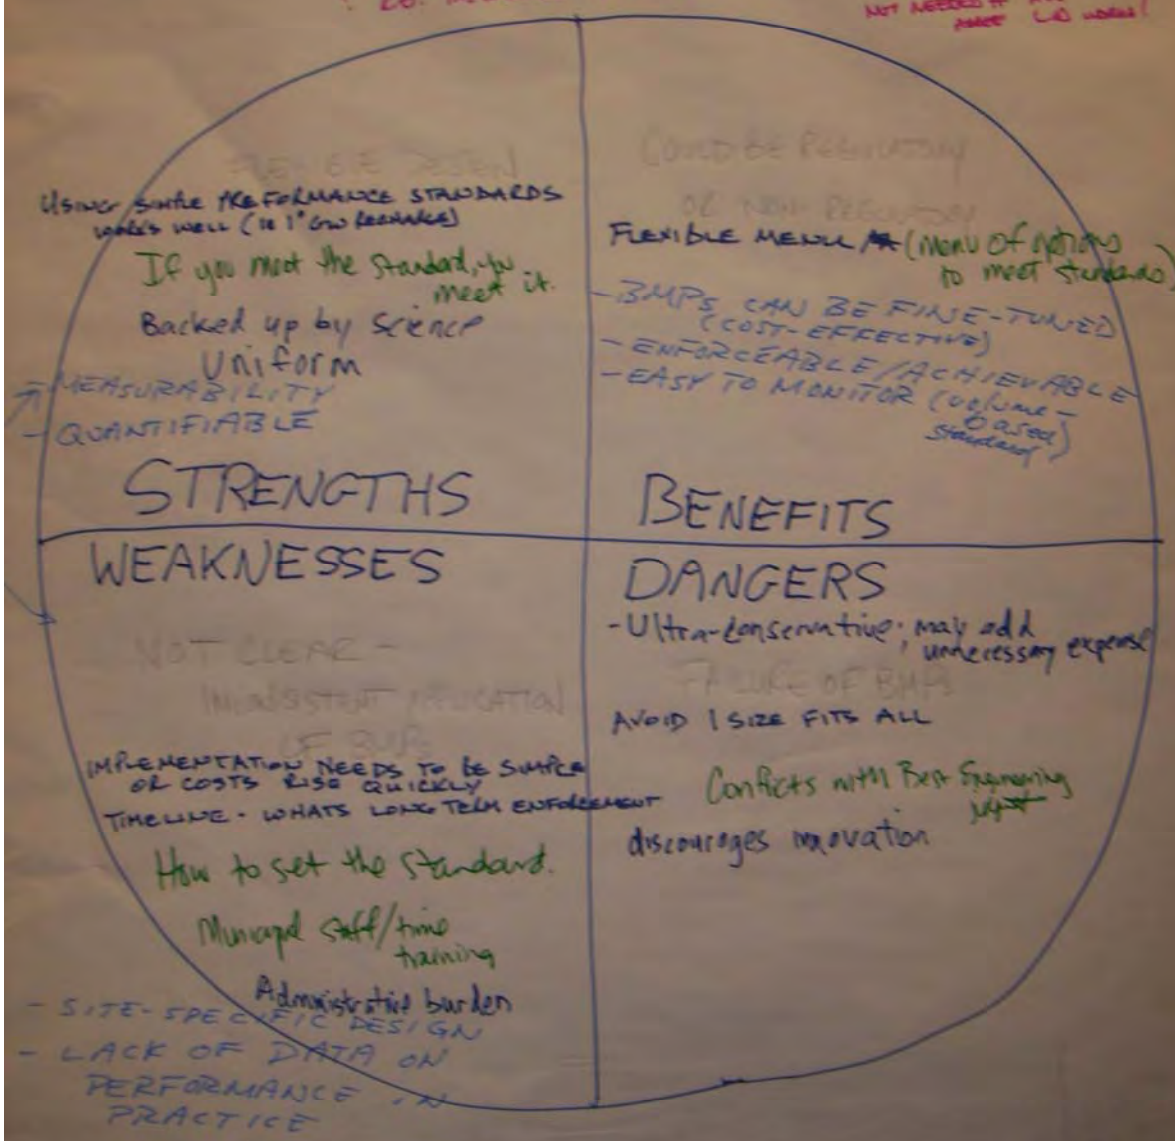 NOT NEEDED
FLEXIBLE DESIGN
USING SIMPLE PREFORMANCE STANDARDS
WORKS WELL (IE 1" GW RECHARGE)
If you meet the standard, you
meet it.
Backed up by science
Uniform
- MEASURABILITY
- QUANTIFIABLE
STRENGTHS
COULD BE REGULATORY
OR NON-REGULATORY
FLEXIBLE MENU (menu of options
to meet standards)
- BMPS CAN BE FINE-TUNED
(COST-EFFECTIVE)
- ENFORCEABLE/ACHIEVABLE
- EASY TO MONITOR (volume-
based)
standard
BENEFITS
WEAKNESSES
NOT CLEAR -
INCONSISTENT APPLICATION
OF BMPS
IMPLEMENTATION NEEDS TO BE SIMPLE
OR COSTS RISE QUICKLY
TIMELINE - WHATS LONG TERM ENFORCEMENT
How to set the standard.
Municipal staff/time
training
Administrative burden
- SITE-SPECIFIC DESIGN
- LACK OF DATA ON
PERFORMANCE IN
PRACTICE
DANGERS
- Ultra-conservative; may add
unnecessary expense
FAILURE OF BMPS
AVOID 1 SIZE FITS ALL
Conflicts with Best Engineering
discourages innovation